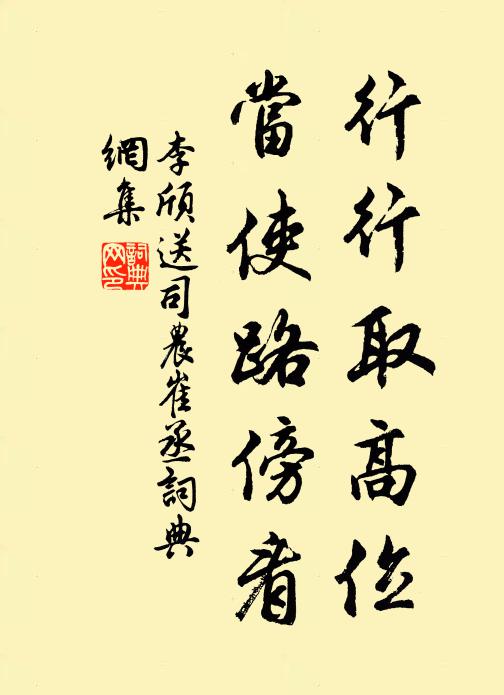 行行取高位
當使路傍看
李頎送司農崔丞詞典
網集
詞典
网印